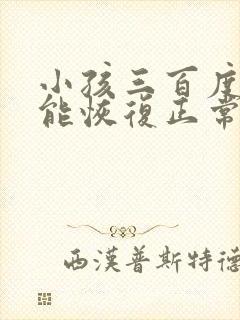 小孩三百度
能恢復正常
西漢普斯特德